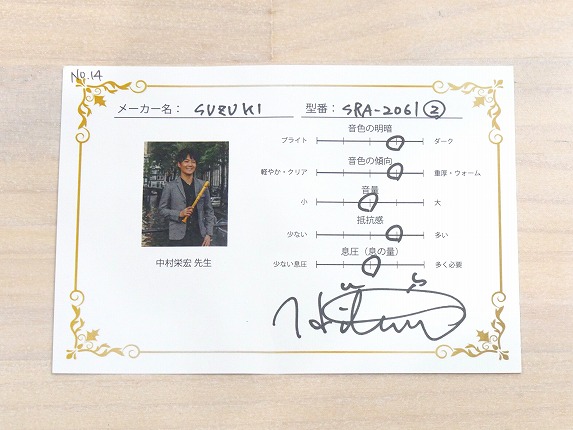 No.14
メーカー名： SUZUKI 型番： SRA-2061②
音色の明暗
ブライト ダーク
音色の傾向
軽やか・クリア 重厚・ウォーム
音量
小 大
抵抗感
少ない 多い
息圧（息の量）
少ない息圧 多く必要
中村栄宏 先生